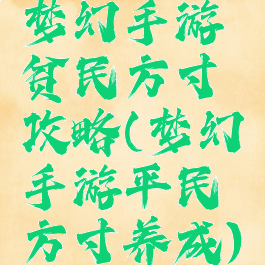 梦幻手游
贫民方寸
攻略(梦幻
手游平民
方寸养成)